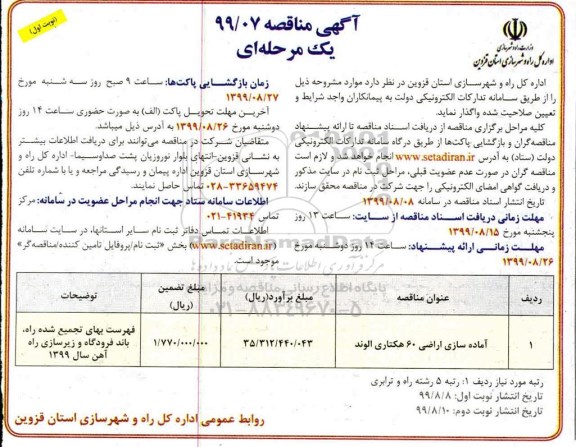 (نوبت اول)
آگهی مناقصه ۹۹/۰۷
یک مرحله‌ای
وزارت راه و شهرسازی
اداره کل راه و شهرسازی استان قزوین
اداره کل راه و شهرسازی استان قزوین در نظر دارد موارد مشروحه ذیل
را از طریق سامانه تدارکات الکترونیکی دولت به پیمانکاران واجد شرایط و
تعیین صلاحیت شده واگذار نماید.
کلیه مراحل برگزاری مناقصه از دریافت اسناد مناقصه تا ارائه پیشنهاد
مناقصه‌گران و بازگشایی پاکت‌ها از طریق درگاه سامانه تدارکات الکترونیکی
دولت (ستاد) به آدرس www.setadiran.ir انجام خواهد شد و لازم است
مناقصه گران در صورت عدم عضویت قبلی، مراحل ثبت نام در سایت مذکور
و دریافت گواهی امضای الکترونیکی را جهت شرکت در مناقصه محقق سازند.
تاریخ انتشار اسناد مناقصه در سامانه ۱۳۹۹/۰۸/۰۸
مهلت زمانی دریافت اسناد مناقصه از سایت: ساعت ۱۳ روز
پنجشنبه مورخ ۱۳۹۹/۰۸/۱۵
مهلت زمانی ارائه پیشنهاد: ساعت ۱۴ روز دوشنبه مورخ
۱۳۹۹/۰۸/۲۶
زمان بازگشایی پاکت‌ها: ساعت ۹ صبح روز سه شنبه مورخ
۱۳۹۹/۰۸/۲۷
آخرین مهلت تحویل پاکت (الف) به صورت حضوری ساعت ۱۴ روز
دوشنبه مورخ ۱۳۹۹/۰۸/۲۶ به آدرس ذیل میباشد.
متقاضیان شرکت در مناقصه می‌توانند برای دریافت اطلاعات بیشتر
به نشانی قزوین-انتهای بلوار نوروزیان پشت صداوسیما- اداره کل راه و
شهرسازی استان قزوین اداره پیمان و رسیدگی مراجعه و یا با شماره تلفن
۰۲۸-۳۳۶۵۹۴۷۴ تماس حاصل نمایند.
اطلاعات سامانه ستاد جهت انجام مراحل عضویت در سامانه: مرکز
تماس ۴۱۹۳۴-۰۲۱
اطلاعات تماس دفاتر ثبت نام سایر استانها، در سایت سامانه
(www.setadiran.ir) بخش «ثبت نام/پروفایل تامین کننده/مناقصه‌گر»
موجود است.
ParsNamadData
۰۲۱-۸۸۳۴۹۶۷۰-۵
ردیف عنوان مناقصه مبلغ برآورد(ریال) مبلغ تضمین (ریال) توضیحات
۱ آماده سازی اراضی ۶۰ هکتاری الوند ۳۵/۳۱۲/۴۴۰/۰۴۳ ۱/۷۷۰/۰۰۰/۰۰۰ فهرست بهای تجمیع شده راه، باند فرودگاه و زیرسازی راه آهن سال ۱۳۹۹
رتبه مورد نیاز ردیف ۱: رتبه ۵ رشته راه و ترابری
تاریخ انتشار نوبت اول: ۹۹/۸/۸
تاریخ انتشار نوبت دوم: ۹۹/۸/۱۰
روابط عمومی اداره کل راه و شهرسازی استان قزوین